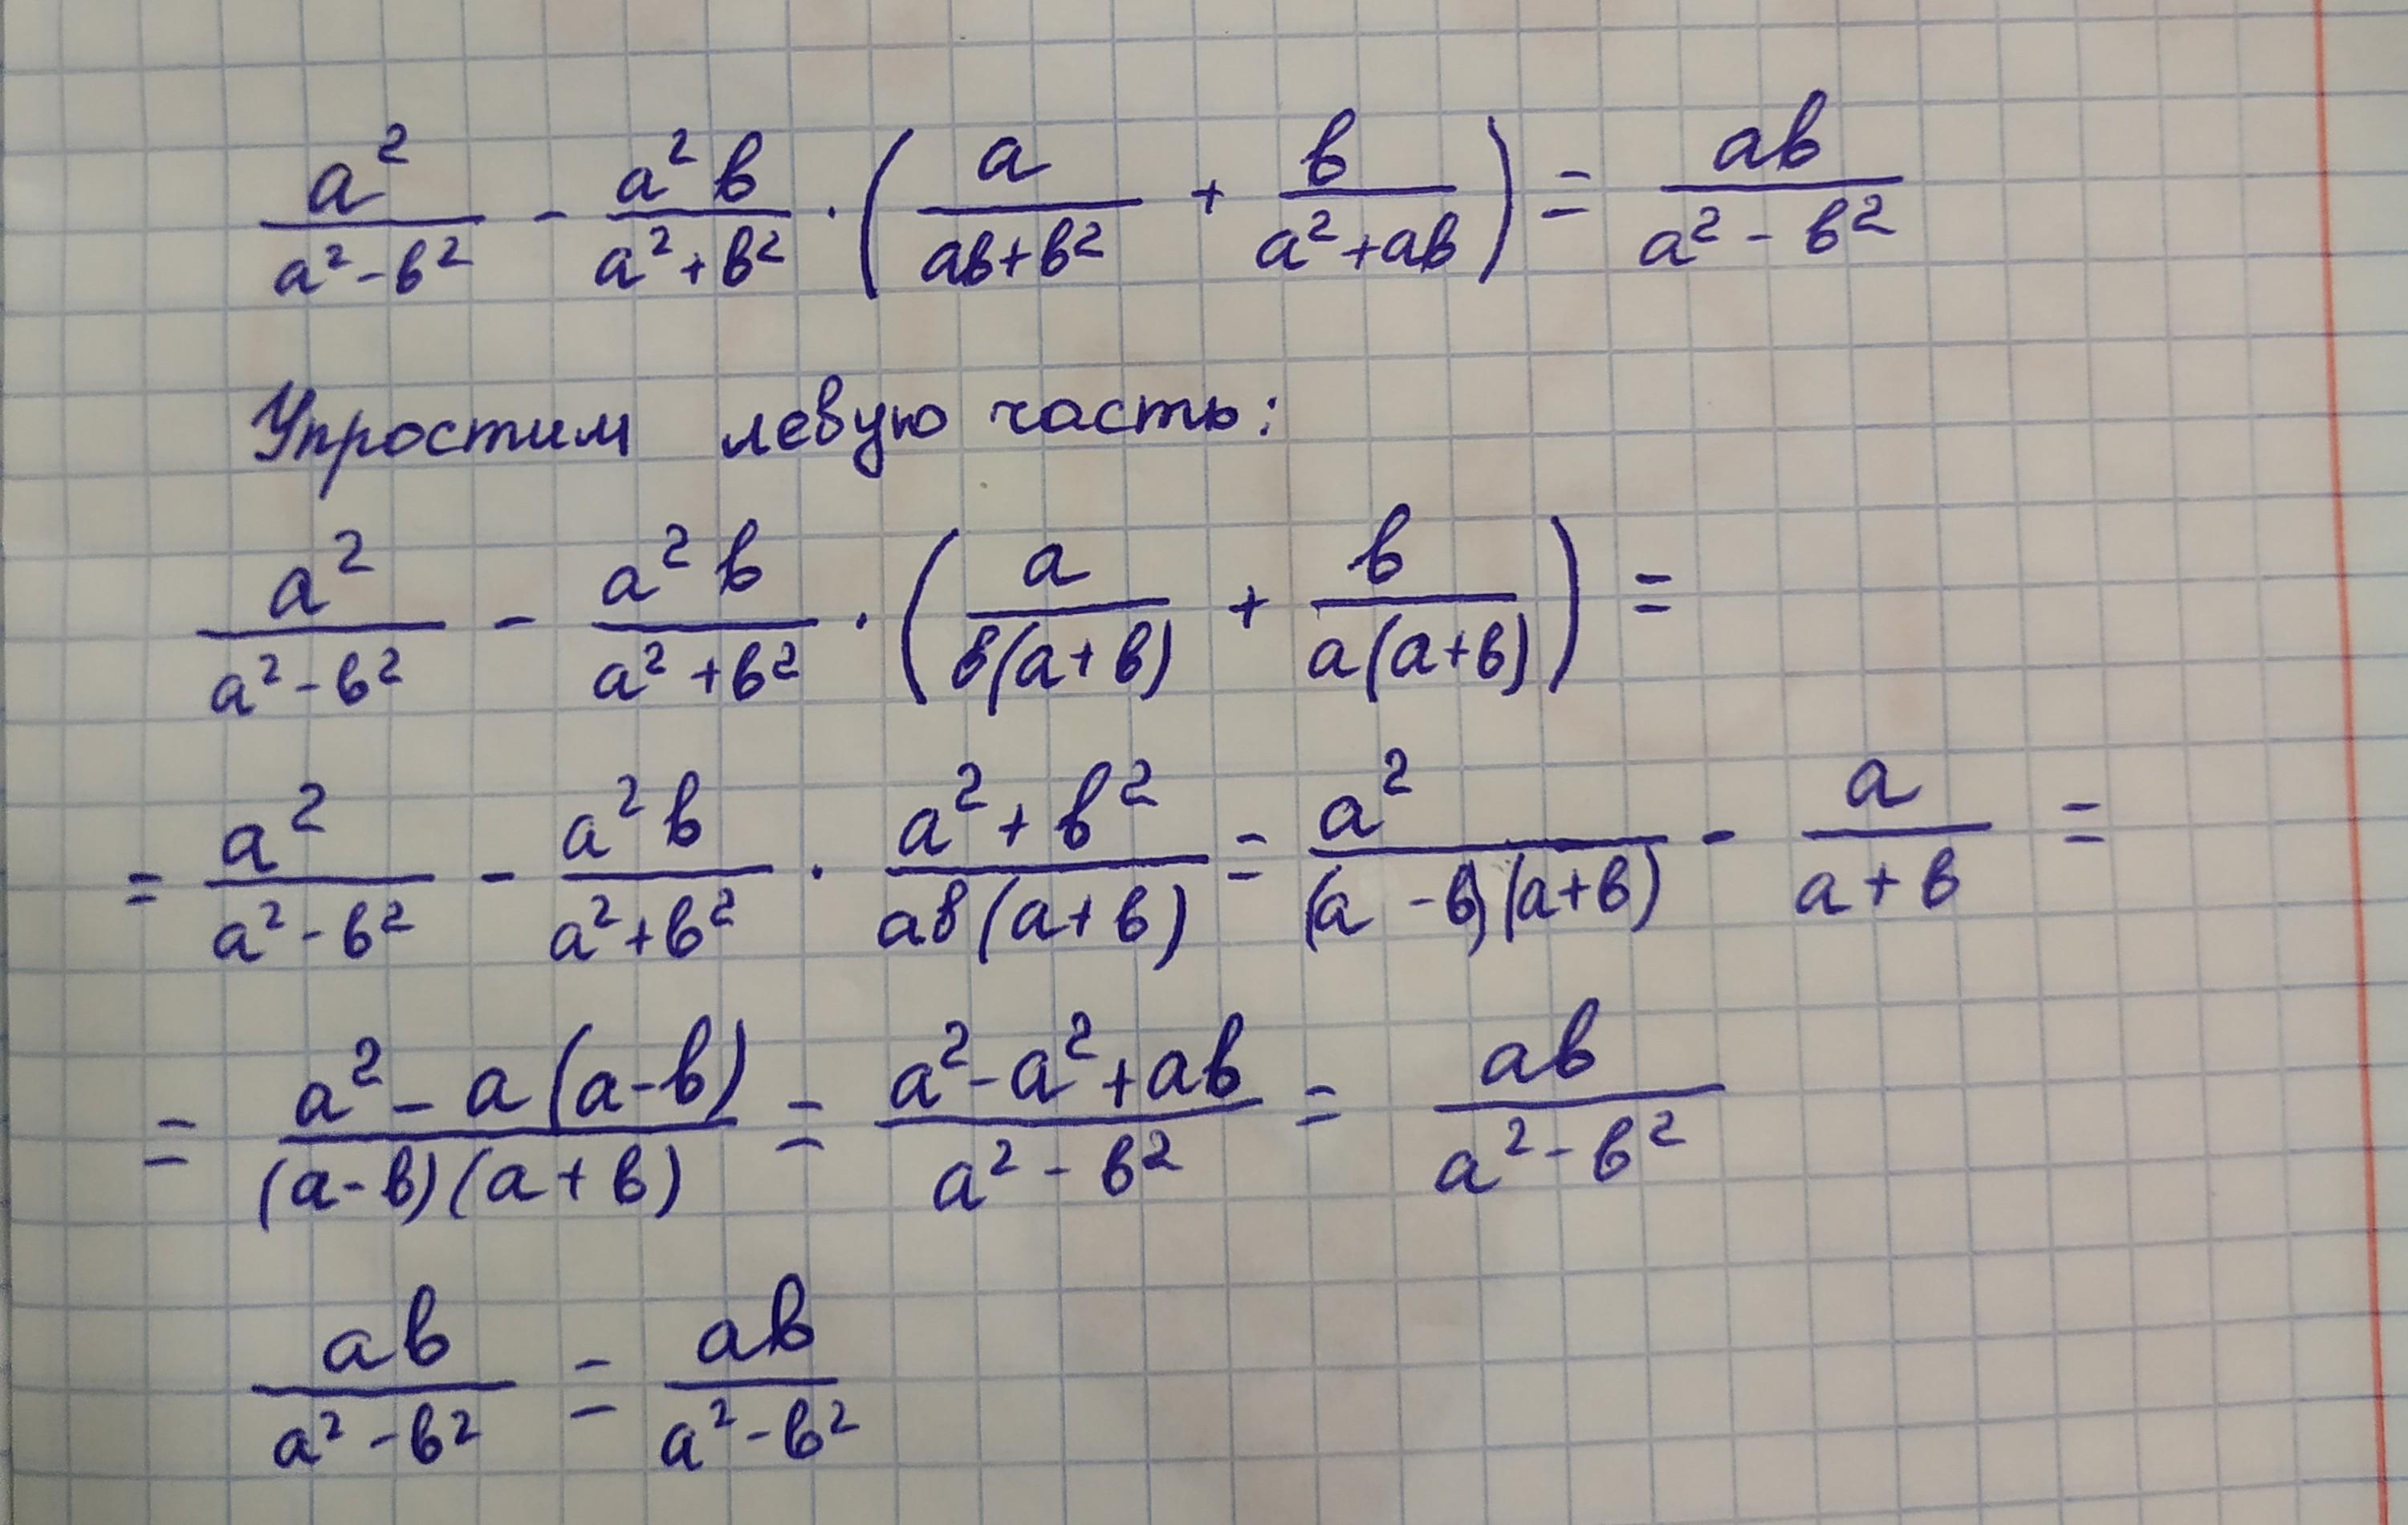 a²/(a²-b²) - a²b/(a²+b²) · (a/(ab+b²) + b/(a²+ab)) = ab/(a²-b²)
Упростим левую часть:
a²/(a²-b²) - a²b/(a²+b²) · (a/(b(a+b)) + b/(a(a+b))) =
= a²/(a²-b²) - a²b/(a²+b²) · (a²+b²)/(ab(a+b)) = a²/((a-b)(a+b)) - a/(a+b) =
= (a²-a(a-b))/((a-b)(a+b)) = (a²-a²+ab)/(a²-b²) = ab/(a²-b²)
ab/(a²-b²) = ab/(a²-b²)